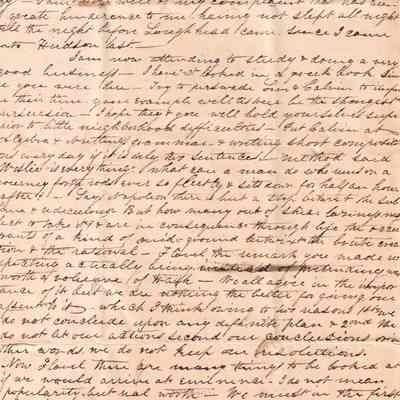 a
vocate inherence to me having not slept all night
till the night before Lough head came since I came
into Hudson last —
I am now attending to study & doing a very
good business — I have'nt looked in a greek book since
you were here — Try to persuade Tom & Calvin to improve
their time your example will to be the strongest
persuasion — I hope they & you will hold yourselves supe
rior to little neighborhood difficulties — Put Calvin at
Algebra & Writing, grammar & writing short composit
ions every day if it is only two sentences — method said
Wesley is everything. What can a man do who runs on a
journey forth rods ever so fleetly & sits down for half an hour
after! — Says Napoleon there is but a step between the sub
lime & ridiculous But how many out of sheer laziness
to take it & are in consequence through life the &
of a kind of mid-ground between the brute creat
ion & the rational — I love the remark you made in
practice actually being instead of pretending
worth volumes of trash — We all agree in the impor
tance of it but we are nothing the better for giving our
assent to it — which I think owing to two reasons 1st we
do not conclude upon any definite plan & 2nd We
do not let our actions second our conclusions or in
other words we do not keep our resolutions.
Now I love there are many things to be looked at
if we would arrive at eminence. I do not mean
popularity, but real worth — We must in the first